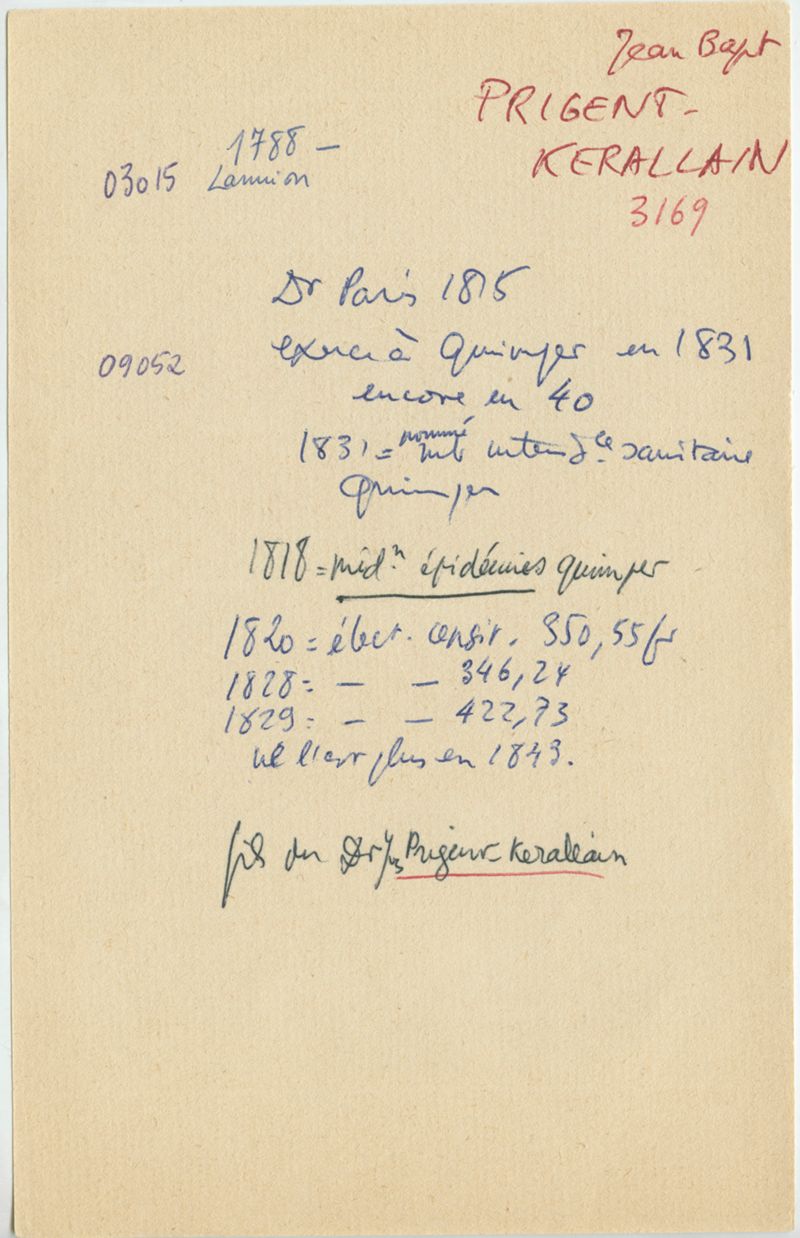 Jean Bapt
PRIGENT-
KERALLAIN
3169
1788 -
03015 Lannion
Dr Paris 1815
exerce à Quimper en 1831
09052
encore en 40
1831 = nommé mb intendce sanitaire
Quimper
1818 = médn épidémies Quimper
1820 = élect. censit. 350,55 fr
1828 = - - 346,24
1829 = - - 422,73
ne l'est plus en 1843.
fils du Dr Yves Prigent-Kerallain